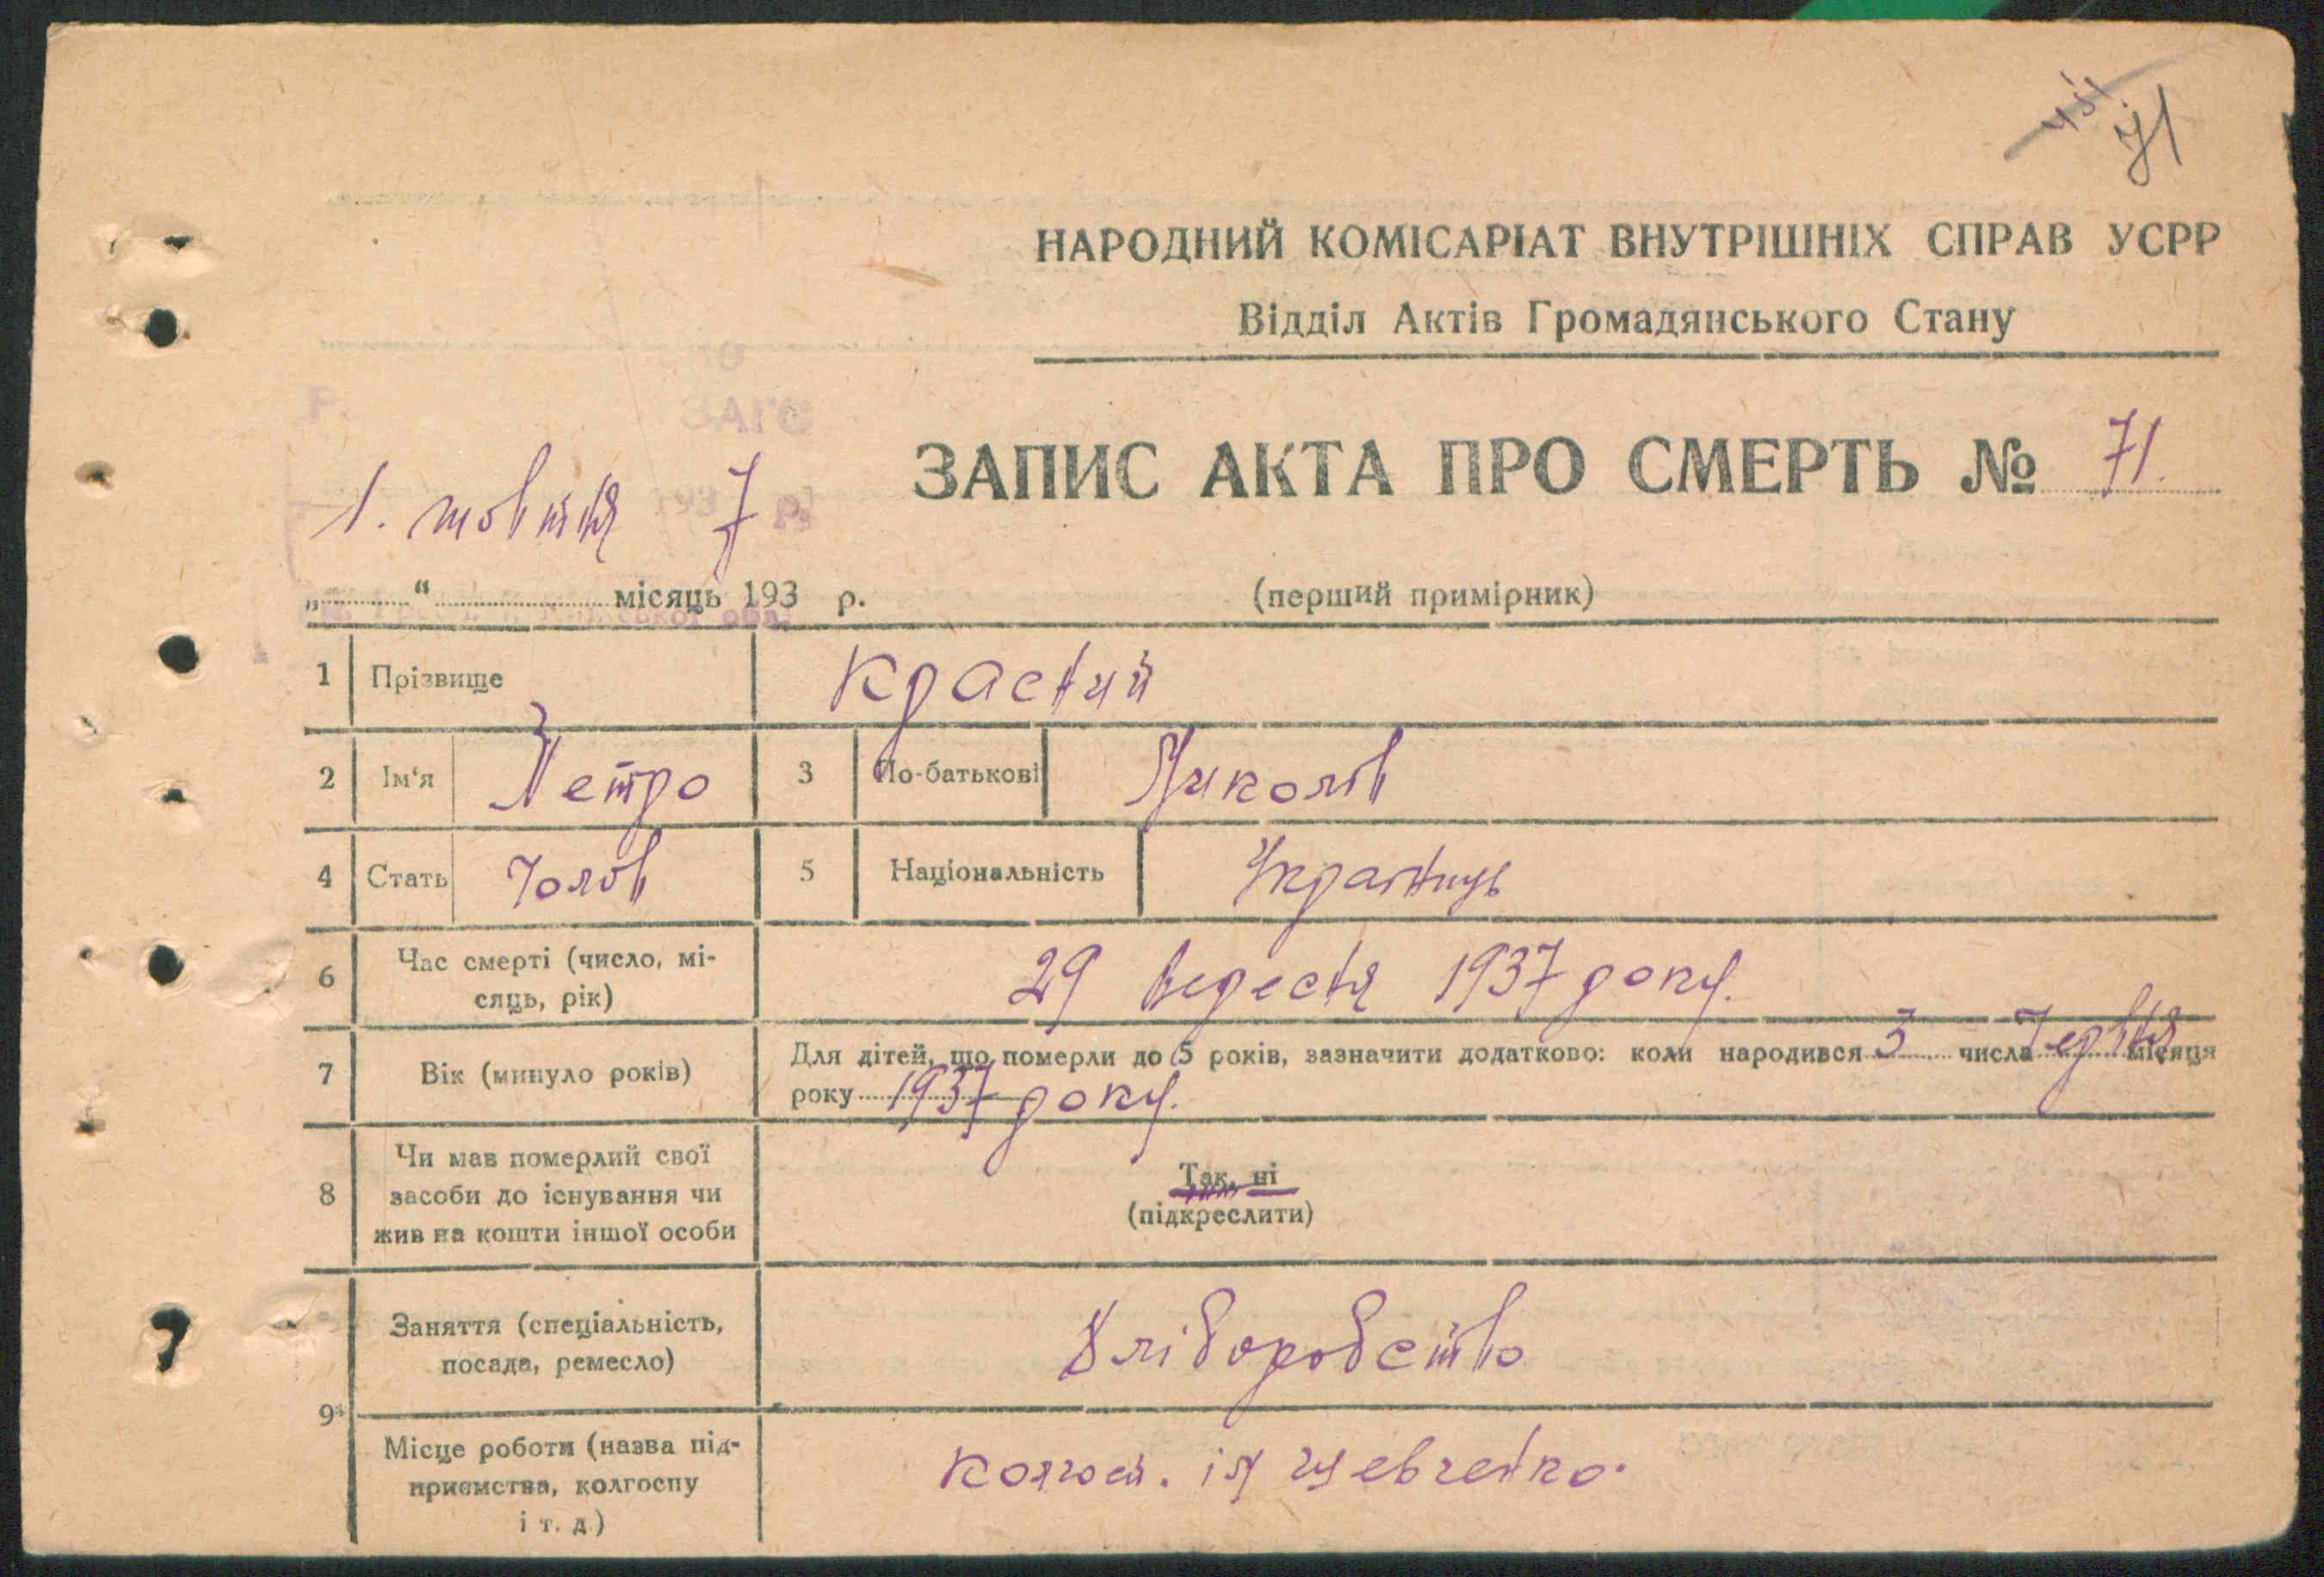 71
НАРОДНИЙ КОМІСАРІАТ ВНУТРІШНІХ СПРАВ УСРР
Відділ Актів Громадянського Стану
ЗАГС
ЗАПИС АКТА ПРО СМЕРТЬ № 71.
1. жовтня 7
„ “ місяць 193 р.
(перший примірник)
1 Прізвище Красний
2 Ім'я Петро 3 По-батькові Миколів
4 Стать Чолов 5 Національність Українць
6 Час смерті (число, мі-
сяць, рік) 29 вересня 1937 року.
7 Вік (минуло років) Для дітей, що померли до 5 років, зазначити додатково: коли народився 3 числа Червня місяця
року 1937 року.
8 Чи мав померлий свої
засоби до існування чи
жив на кошти іншої особи
Так, ні
(підкреслити)
9 Заняття (спеціальність,
посада, ремесло) Хліборобство
Місце роботи (назва під-
приємства, колгоспу
і т. д.) колгосп. ім Шевченко.